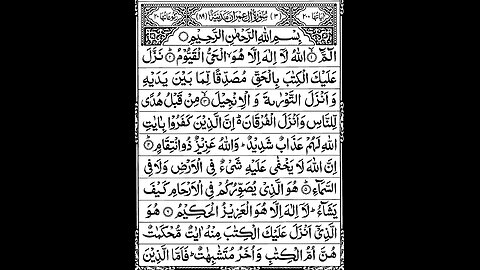 اٰیاتھا ٢٠٠ (٣) سُوْرَةُ اٰلِ عِمْرٰنَ مَدَنِیَّةٌ (٨٩) رکوعاتھا ٢٠
بِسْمِ اللّٰهِ الرَّحْمٰنِ الرَّحِیْمِ
الٓمَّٓ ۙ۝۱ اللّٰهُ لَاۤ اِلٰهَ اِلَّا هُوَ ۙ الْحَیُّ الْقَیُّوْمُ ؕ۝۲ نَزَّلَ
عَلَیْكَ الْكِتٰبَ بِالْحَقِّ مُصَدِّقًا لِّمَا بَیْنَ یَدَیْهِ
وَ اَنْزَلَ التَّوْرٰىةَ وَ الْاِنْجِیْلَ ۙ۝۳ مِنْ قَبْلُ هُدًى
لِّلنَّاسِ وَ اَنْزَلَ الْفُرْقَانَ ؕ اِنَّ الَّذِیْنَ كَفَرُوْا بِاٰیٰتِ
اللّٰهِ لَهُمْ عَذَابٌ شَدِیْدٌ ؕ وَ اللّٰهُ عَزِیْزٌ ذُو انْتِقَامٍ ؕ۝۴
اِنَّ اللّٰهَ لَا یَخْفٰى عَلَیْهِ شَیْءٌ فِی الْاَرْضِ وَ لَا فِی
السَّمَآءِ ؕ۝۵ هُوَ الَّذِیْ یُصَوِّرُكُمْ فِی الْاَرْحَامِ كَیْفَ
یَشَآءُ ؕ لَاۤ اِلٰهَ اِلَّا هُوَ الْعَزِیْزُ الْحَكِیْمُ ۝۶ هُوَ
الَّذِیْۤ اَنْزَلَ عَلَیْكَ الْكِتٰبَ مِنْهُ اٰیٰتٌ مُّحْكَمٰتٌ
هُنَّ اُمُّ الْكِتٰبِ وَ اُخَرُ مُتَشٰبِهٰتٌ ؕ فَاَمَّا الَّذِیْنَ